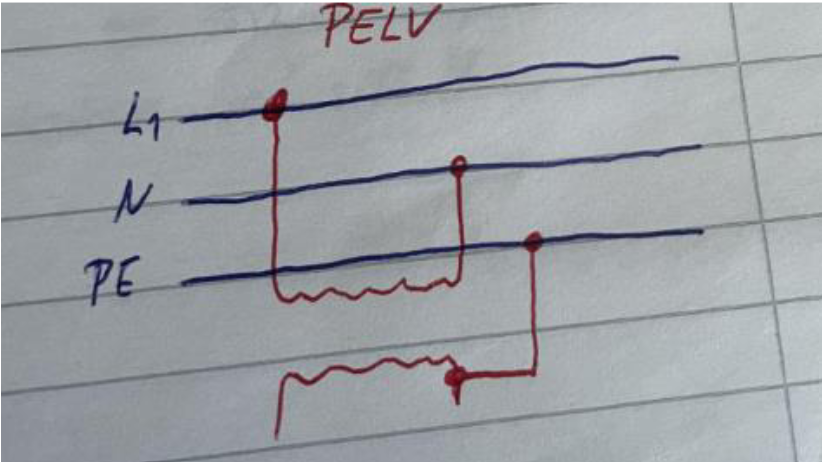 PELV
L1
N
PE